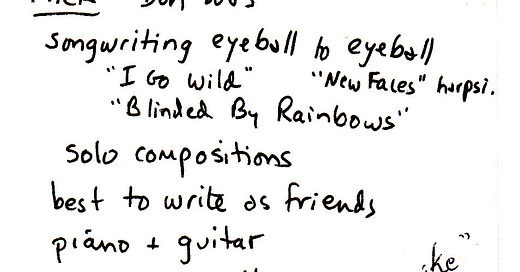 songwriting eyeball to eyeball
"I Go Wild" "New Faces" harpsi.
"Blinded By Rainbows"
solo compositions
best to write as friends
piano + guitar
ke"